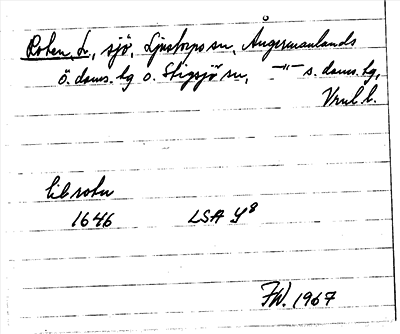 Roten, L., sjö, Ljustorps sn, Ångermanlands
ö. doms. tg o. Stigsjö sn, —"— s. doms. tg,
Vnrl l.
Lil roten
1646 LSA Y8
FW. 1967